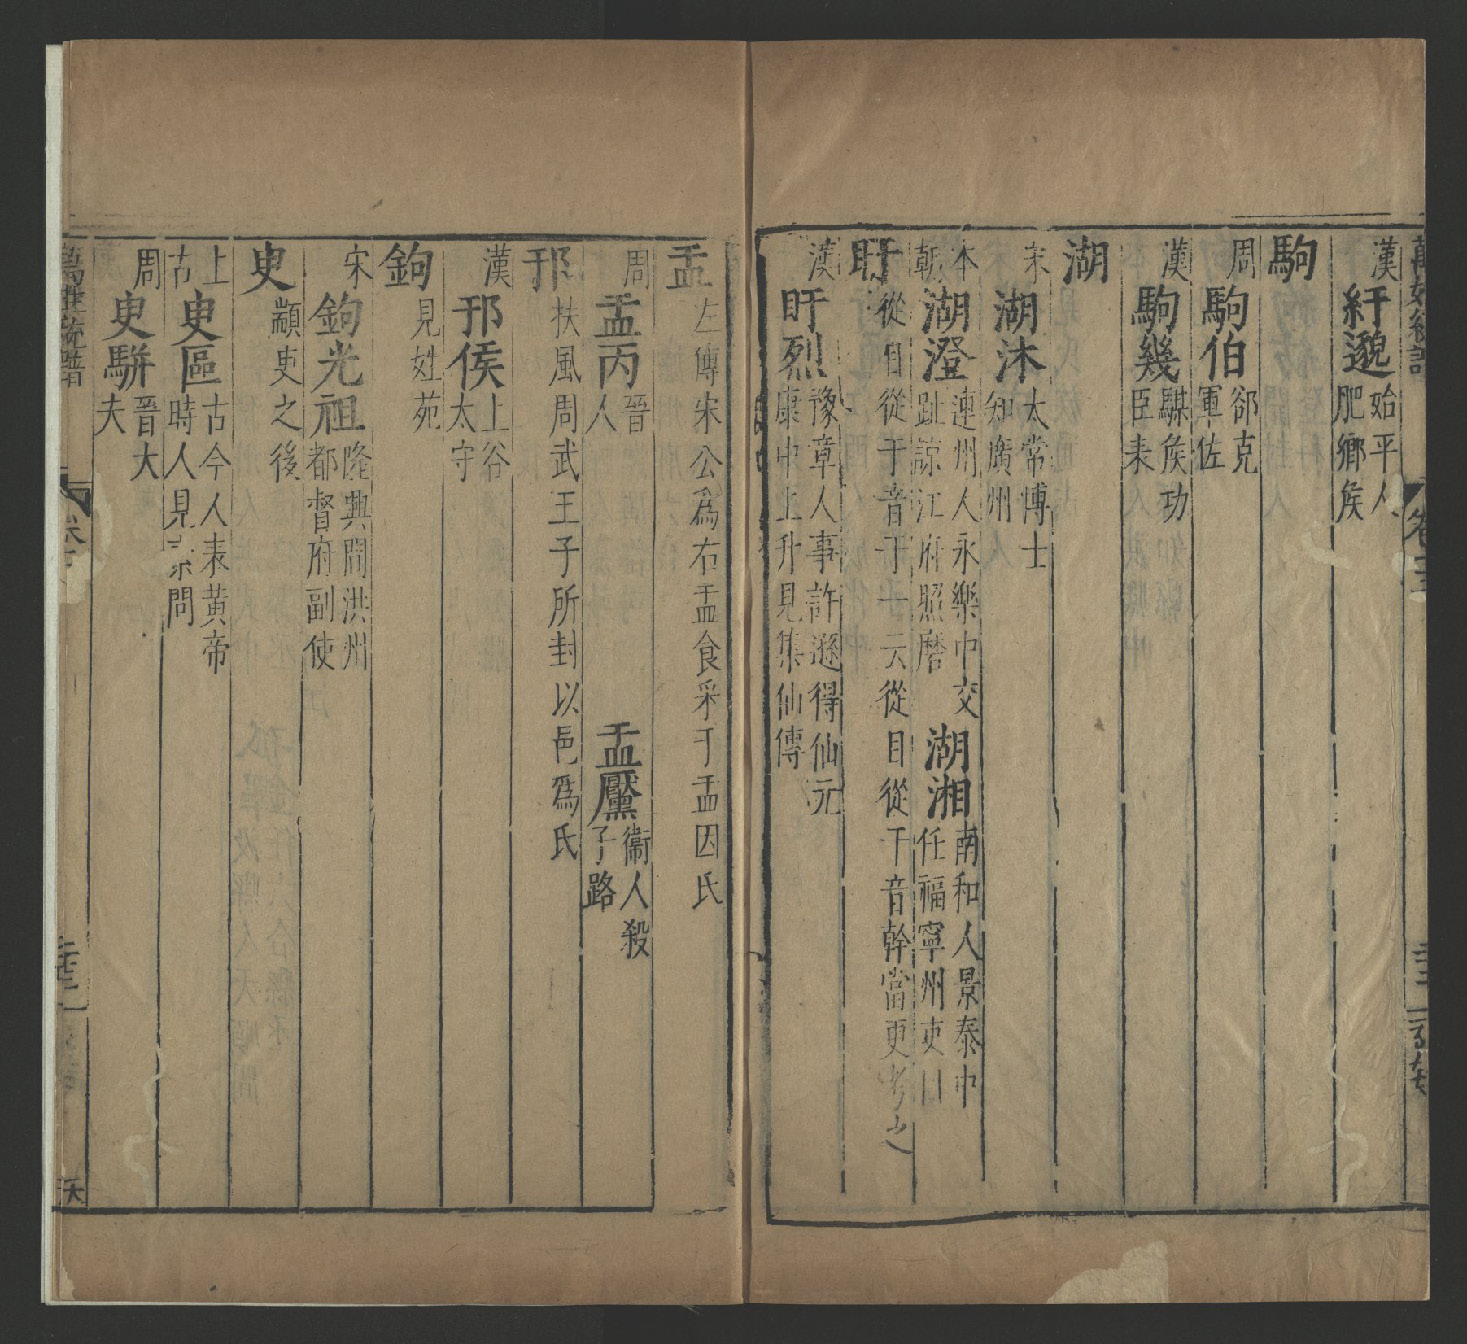 漢 紆邈 始平人肥鄉侯
駒
周 駒伯 郤克軍佐
漢 駒幾 騏侯功臣表
湖
宋 湖沐 太常博士知廣州
本朝 湖澄 連州人永樂中交趾諒江府照磨 湖湘 南和人景泰中任福寧州吏目
盱 從目從于音吁一云從目從干音幹當更考之
漢 盱烈 豫章人事許遜得仙元康中上升見集仙傳
盂 左傳宋公為右盂食采于盂因氏
周 盂丙 晉人 盂黶 衞人殺子路
邘 扶風周武王子所封以邑為氏
漢 邘侯 上谷太守
鉤 見姓苑
宋 鉤光祖 隆興間洪州都督府副使
臾 顓臾之後
上古 臾區 古今人表黃帝時人見素問
周 臾騈 晉大夫
萬姓統譜